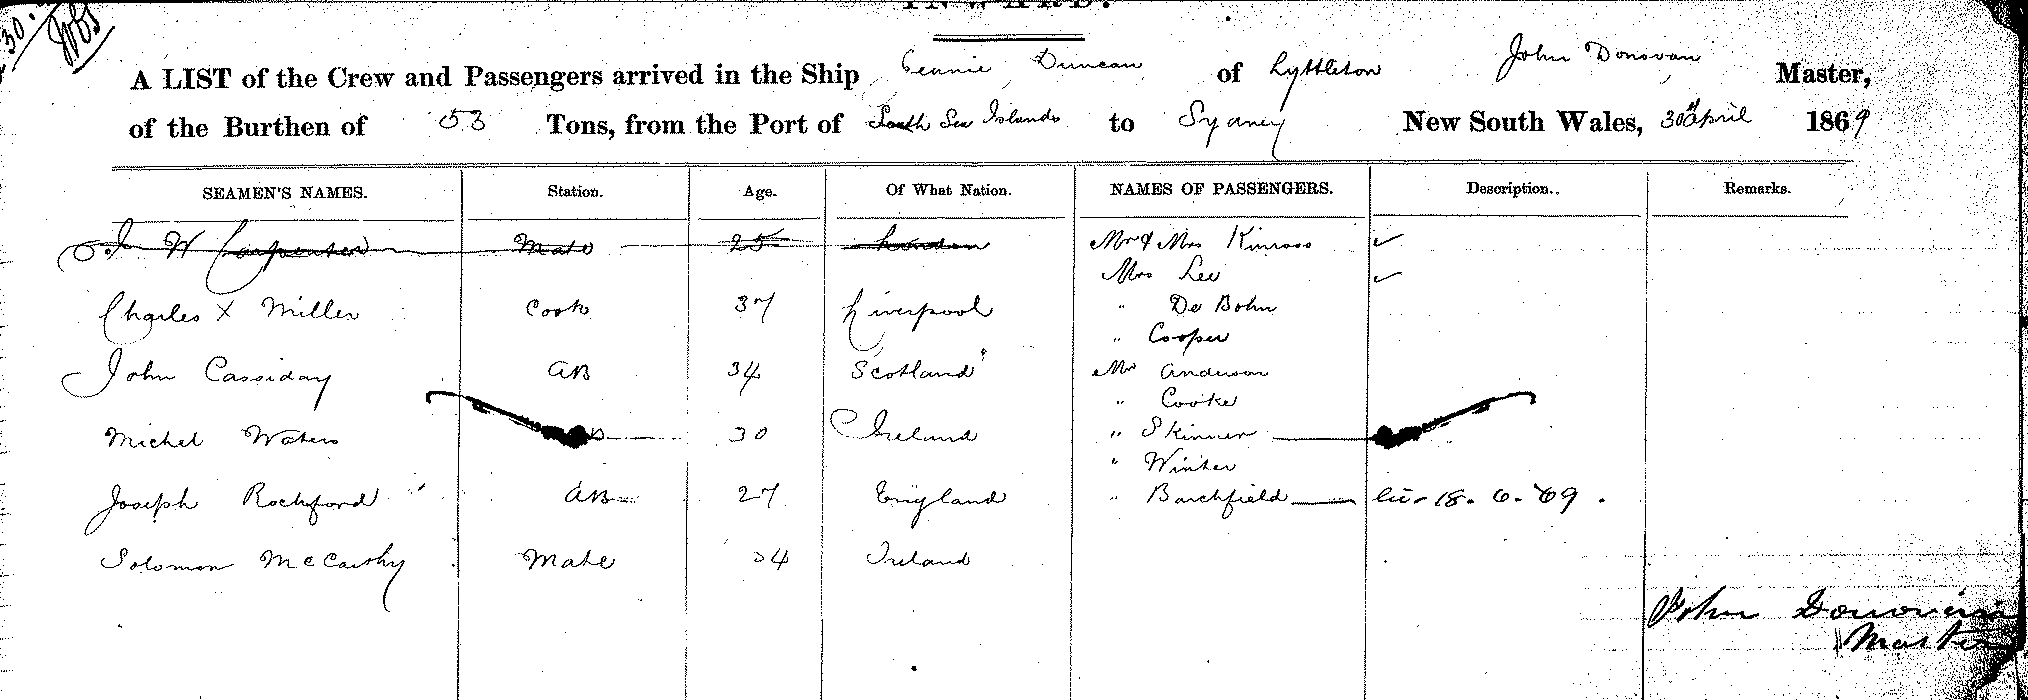 INWARD.
A LIST of the Crew and Passengers arrived in the Ship Jennie Duncan of Lyttleton John Donovan Master,
of the Burthen of 53 Tons, from the Port of South Sea Islands to Sydney New South Wales, 30th April 1869
SEAMEN'S NAMES. Station. Age. Of What Nation. NAMES OF PASSENGERS. Description. Remarks.
W Carpenter Mate 25 London Mr & Mrs Kinross ✓
Mrs Lee ✓
Charles X Miller Cook 37 Liverpool " De Bohn
" Cooper
John Cassiday AB 34 Scotland Mr Anderson
" Cooke
Michel Waters 30 Ireland " Skinner
" Winter
Joseph Rochford AB 27 England " Barchfield 18. 6. 69.
Solomon McCarthy Mate 34 Ireland
John Donovan
Master